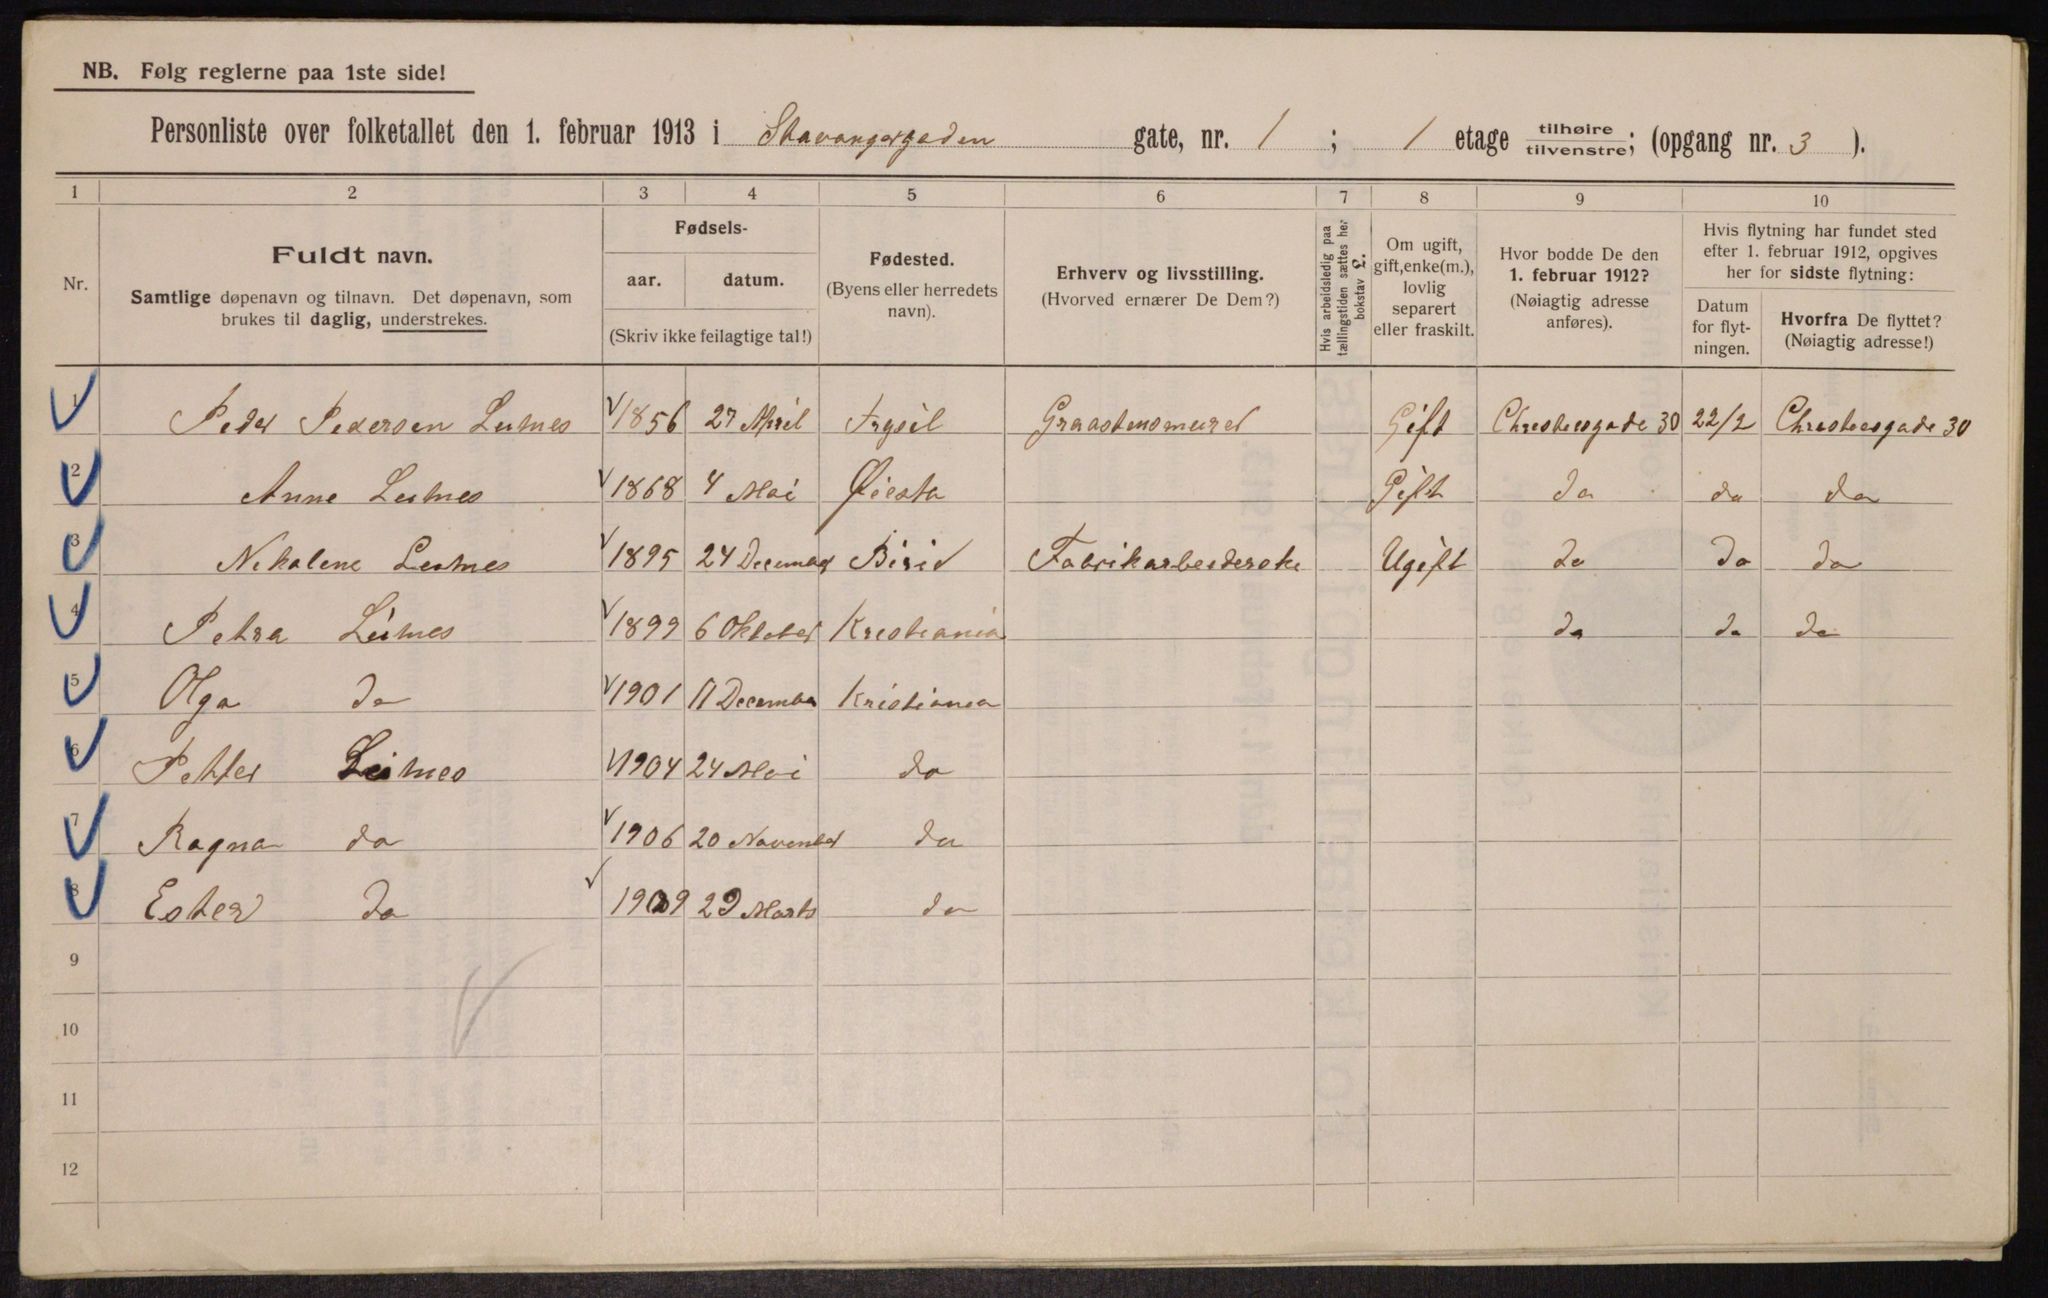 NB. Følg reglerne paa 1ste side!
Personliste over folketallet den 1. februar 1913 i Stavangergaden gate, nr. 1 ; 1 etage tilhøire tilvenstre; (opgang nr. 3 ).
1 2 3 4 5 6 7 8 9 10
Nr.
Fuldt navn.
Samtlige døpenavn og tilnavn. Det døpenavn, som
brukes til daglig, understrekes.
Fødsels-
aar. datum.
(Skriv ikke feilagtige tal!)
Fødested.
(Byens eller herredets
navn).
Erhverv og livsstilling.
(Hvorved ernærer De Dem?)
Hvis arbeidsledig paa
tællingstiden sættes her
bokstav L.
Om ugift,
gift, enke(m.),
lovlig
separert
eller fraskilt.
Hvor bodde De den
1. februar 1912?
(Nøiagtig adresse
anføres).
Hvis flytning har fundet sted
efter 1. februar 1912, opgives
her for sidste flytning:
Datum
for flyt-
ningen.
Hvorfra De flyttet?
(Nøiagtig adresse!)
1 Peder Pedersen 1856 27 April Trysil Graastensmurer Gift 30 22/2 30
2 Anne 1868 4 Mai Gift do do do
3 Nikoline 1895 24 December Birid Fabrikarbeiderske Ugift do do do
4 Petra 1899 6 Oktober Kristiania do do do
5 Olga do 1901 11 December Kristiania
6 Petter 1904 24 Mai do
7 Ragna do 1906 20 November do
8 Ester do 1909 29 Marts do
9
10
11
12